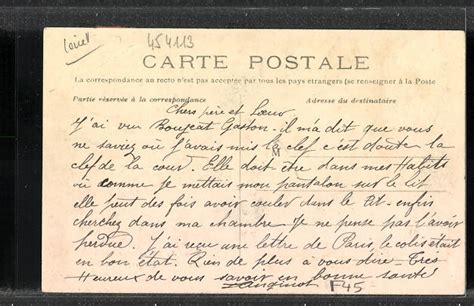 Loiret
454113
CARTE POSTALE
La correspondance au recto n'est pas acceptée par tous les pays étrangers (se renseigner à la Poste
Partie réservée à la correspondance
Adresse du destinataire
Chers père et Sœur
J'ai vu Gaston - il m'a dit que vous
ne saviez où j'avais mis la clef c'est doute la
clef de la cour. Elle doit être dans mes Habits
où comme je mettais mon pantalon sur le lit
elle peut des fois avoir couler dans le lit - enfin
cherchez dans ma chambre Je ne pense pas l'avoir
perdue. J'ai reçu une lettre de Paris, le colis était
en bon état. Rien de plus à vous dire - Très
Heureux de vous savoir en bonne santé
F45